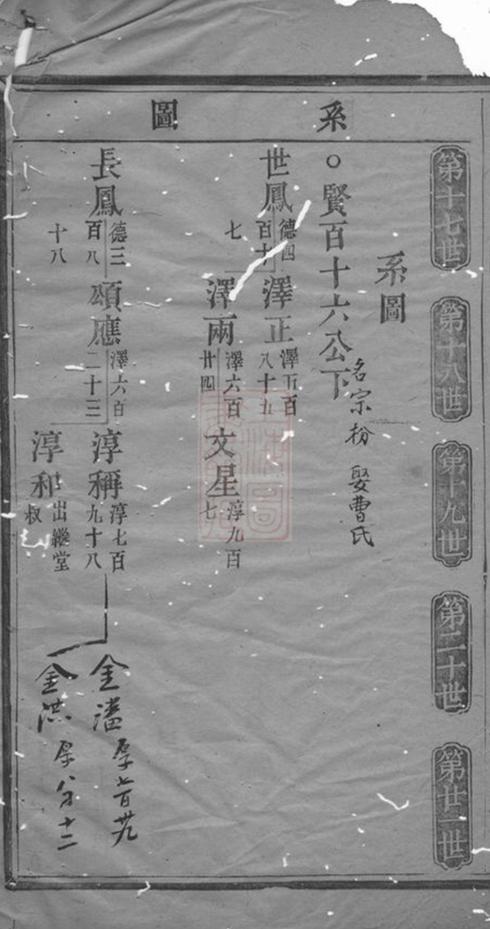 系圖
第十七世
第十八世
第十九世
第二十世
第廿一世
系圖
○賢百十六公下
名宗粉 娶曹氏
世鳳 德四百十七
澤正 澤五百八十五
澤兩 澤六百廿四
文星 淳九百七
長鳳 德三百八十八
頌應 澤六百二十三
淳稱 淳七百九十八
淳和 出繼堂叔
金潘 厚
金洪 厚